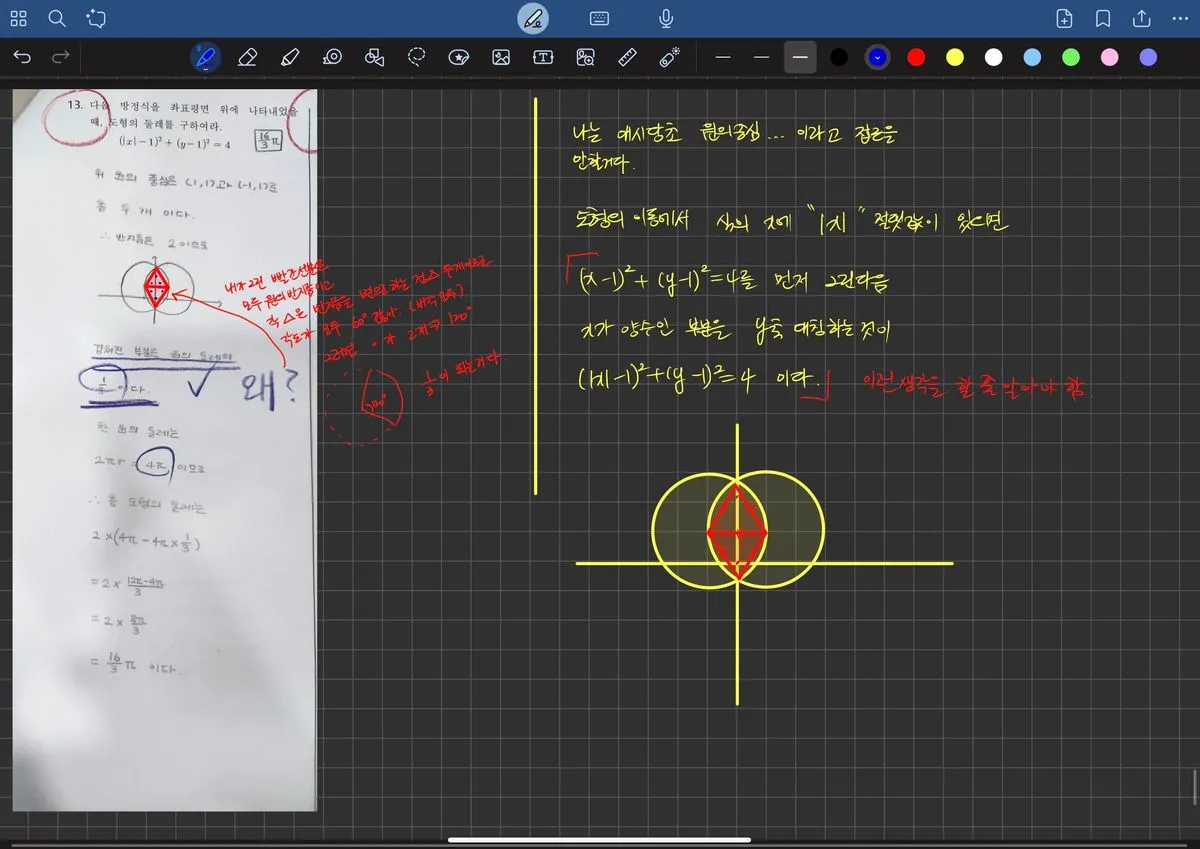 13. 다음 방정식을 좌표평면 위에 나타내었을
때, 도형의 둘레를 구하여라.
(|x|-1)² + (y-1)² = 4
16/3 π
위 원의 중심은 (1,1)과 (-1,1)로
총 두 개 이다.
∴ 반지름은 2 이므로
겹쳐진 부분은 원의 둘레의
1/3 이다. ✓ 왜?
한 원의 둘레는
2πr = 4π 이므로
∴ 총 도형의 둘레는
2×(4π - 4π × 1/3)
= 2 × (12π-4π)/3
= 2 × 8π/3
= 16/3 π 이다.
내가 그린 빨간선분은
모두 원의 반지름이고
즉 △은 반지름을 변으로 하는 정△ 두개이므로
각도가 모두 60° 잖아. (내각 모두)
그러면 •가 2개 ⇒ 120°
120°
1/3이 되는거다.
나는 애시당초 원의중심... 이라고 접근을
안할거다.
도형의 이동에서 식의 x에 "|x|" 절댓값이 있으면
(x-1)² + (y-1)² = 4를 먼저 그린다음
x가 양수인 부분을 y축 대칭하는 것이
(|x|-1)² + (y-1)² = 4 이다.
이런생각을 할 줄 알아야 함.